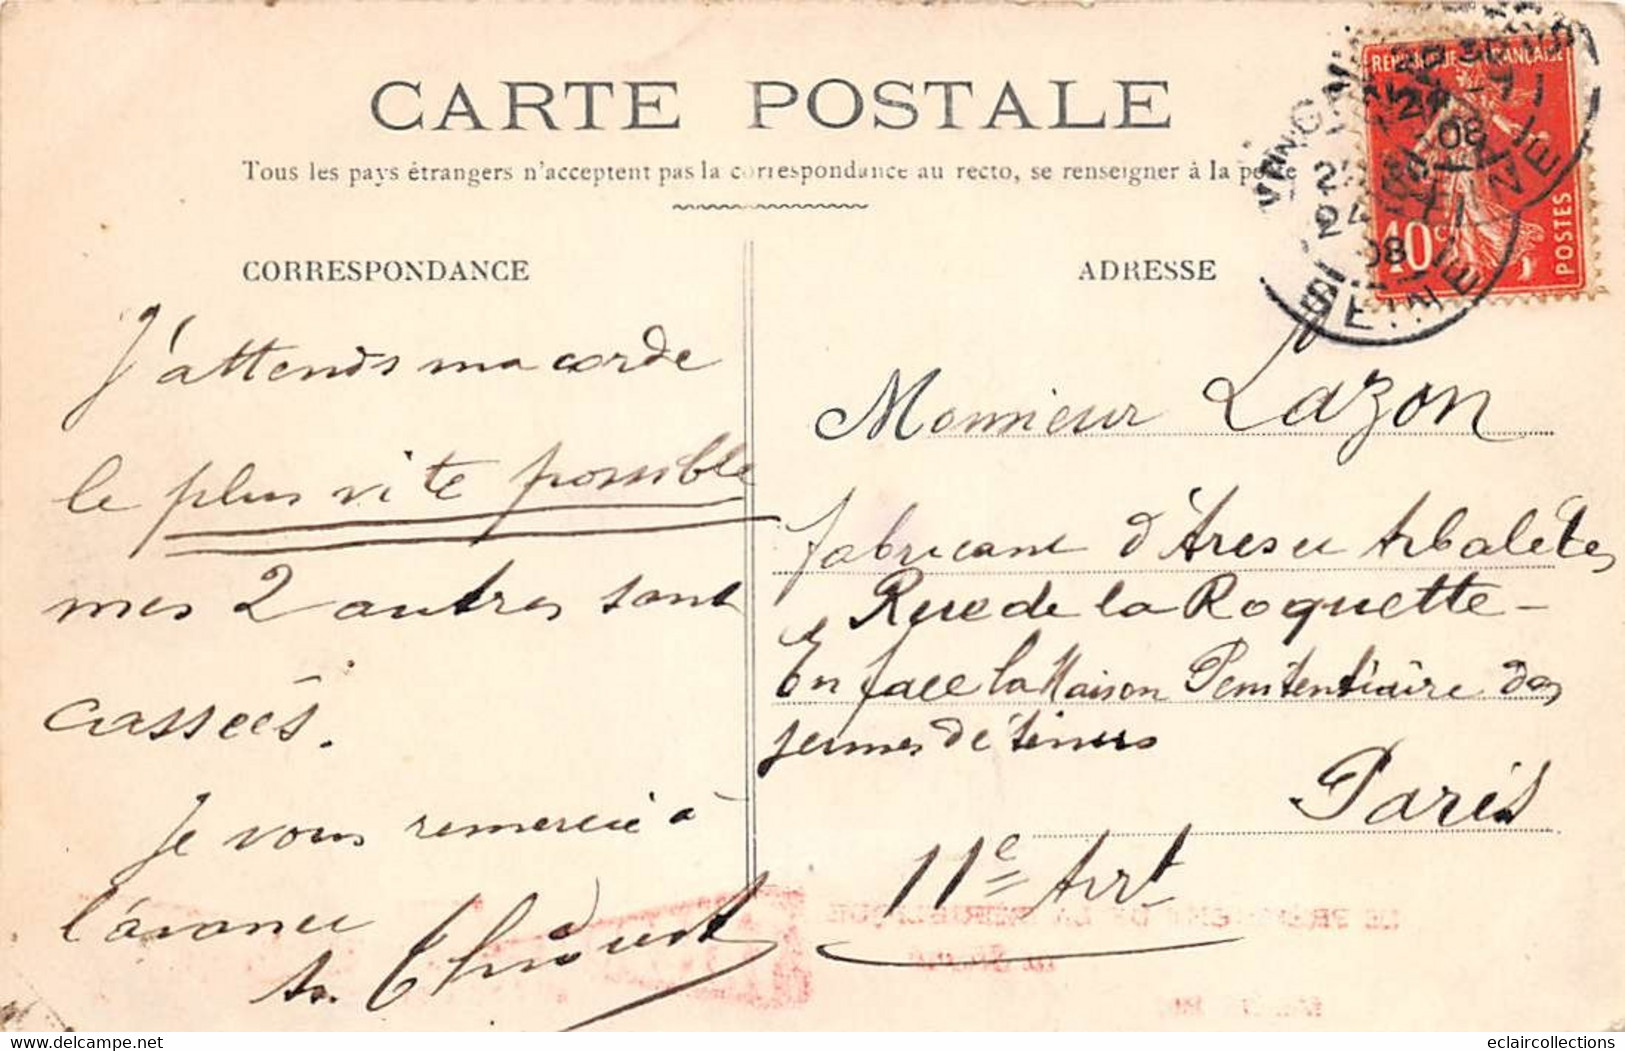 CARTE POSTALE
Tous les pays étrangers n'acceptent pas la correspondance au recto, se renseigner à la poste
CORRESPONDANCE
ADRESSE
RÉPUBLIQUE FRANÇAISE
10c
POSTES
VINCENNES
24
08
SEINE
J'attends ma corde
le plus vite possible
mes 2 autres sont
cassées.
Je vous remercie à
l'avance
Monsieur Lazon
fabricant d'Arcs et Arbalètes
Rue de la Roquette -
En face la Maison Penitentiaire des
jeunes détenus
Paris
11e Arrt
eclaircollections